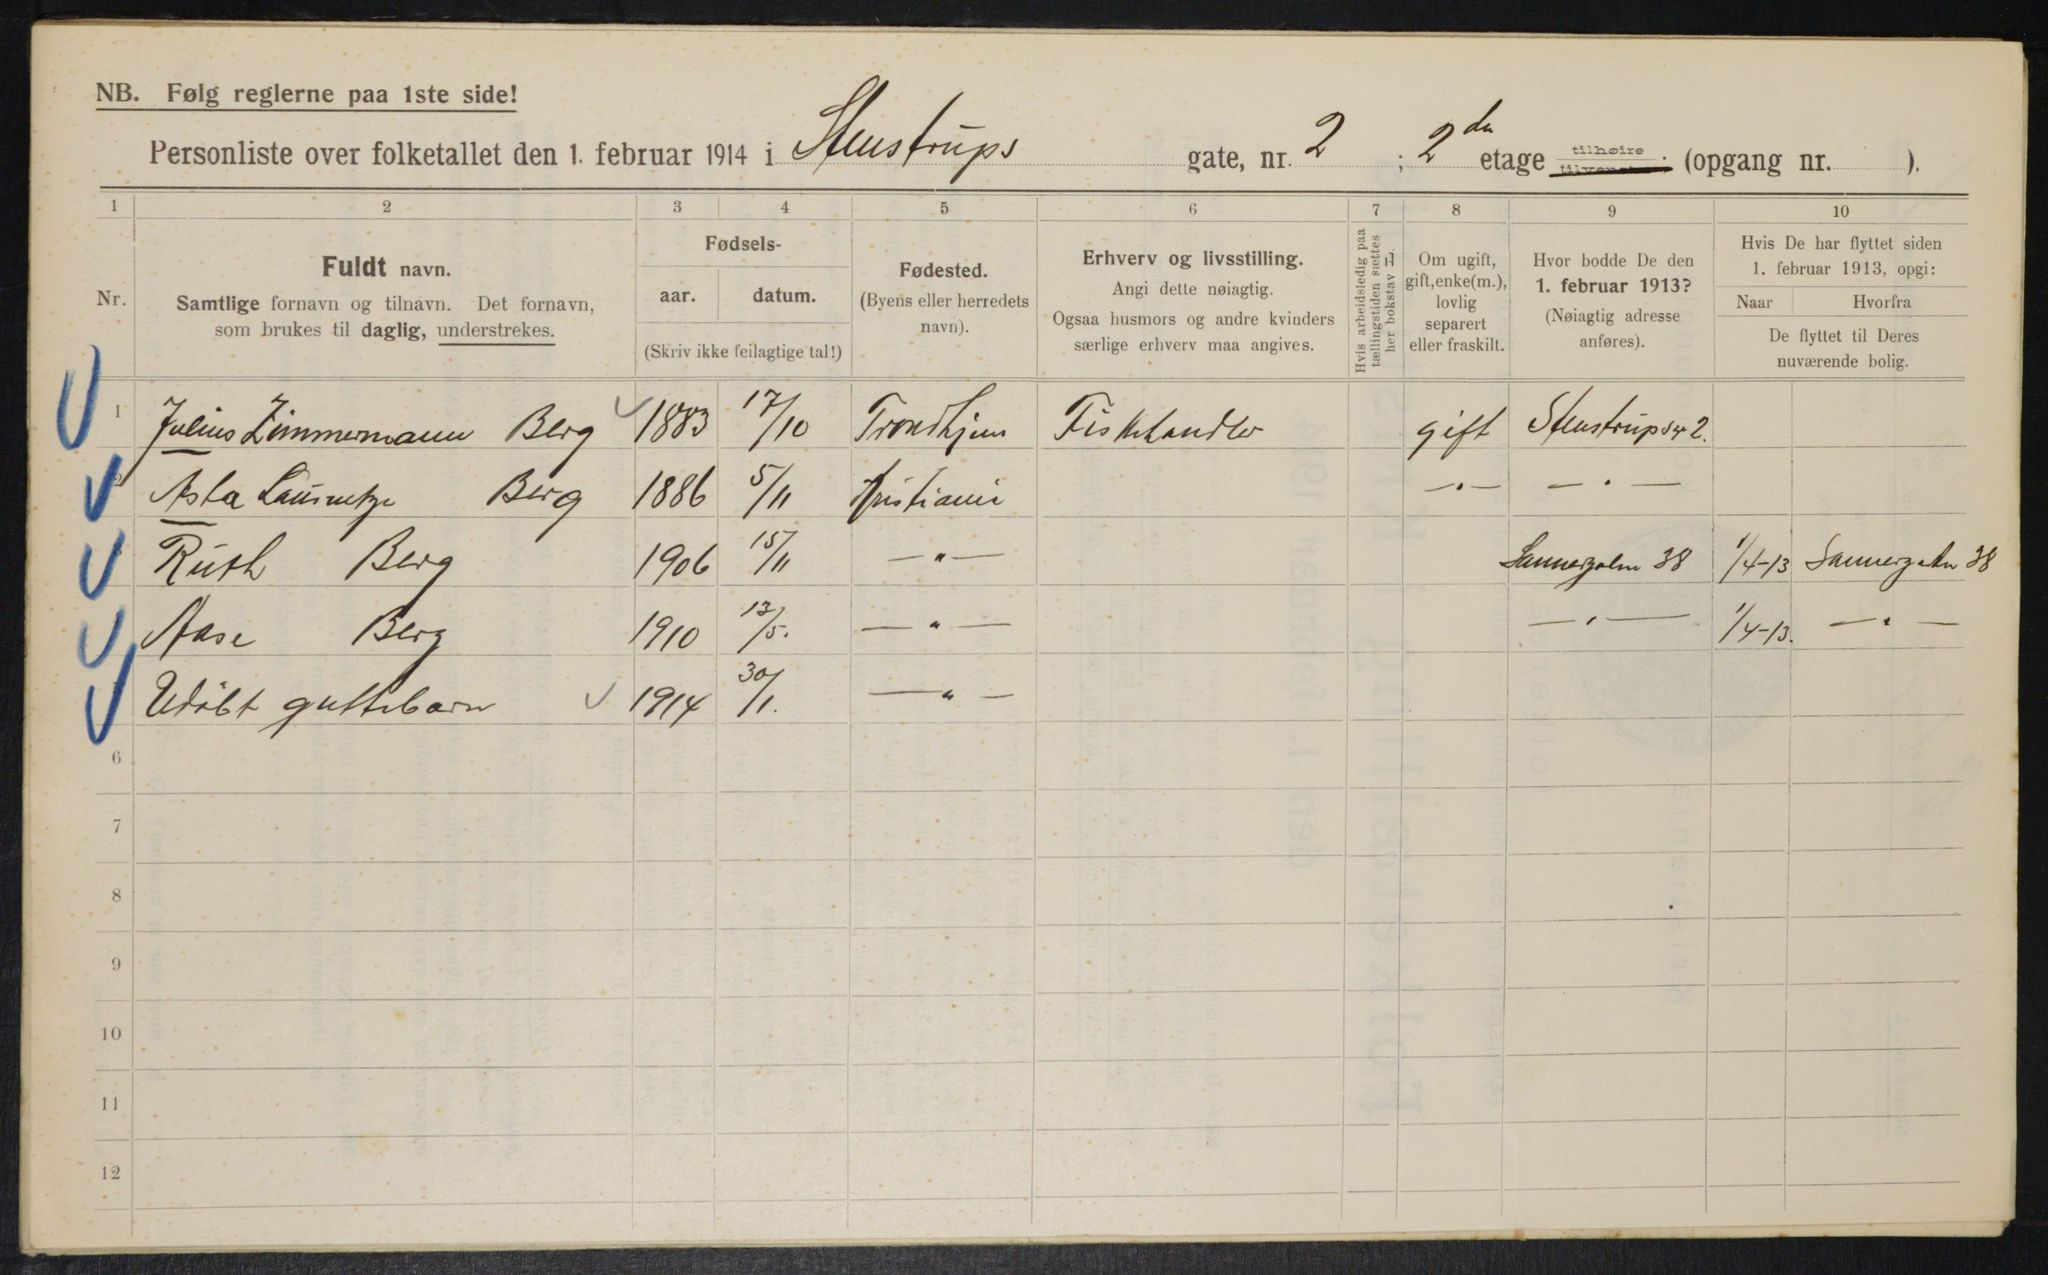 NB. Følg reglerne paa 1ste side!
Personliste over folketallet den 1. februar 1914 i Stenstrups gate, nr. 2 ; 2den etage tilhøire tilvenstre. (opgang nr. ).
1 2 3 4 5 6 7 8 9 10
Nr.
Fuldt navn.
Samtlige fornavn og tilnavn. Det fornavn,
som brukes til daglig, understrekes.
Fødsels-
aar. datum.
(Skriv ikke feilagtige tal!)
Fødested.
(Byens eller herredets
navn).
Erhverv og livsstilling.
Angi dette nøiagtig.
Ogsaa husmors og andre kvinders
særlige erhverv maa angives.
Hvis arbeidsledig paa
tællingstiden sættes
her bokstav L.
Om ugift,
gift, enke(m.),
lovlig
separert
eller fraskilt.
Hvor bodde De den
1. februar 1913?
(Nøiagtig adresse
anføres).
Hvis De har flyttet siden
1. februar 1913, opgi:
Naar Hvorfra
De flyttet til Deres
nuværende bolig.
1 Julius Zimmermann Berg 1883 17/10 Trondhjem Fiskehandler gift Stenstrupsgt 2.
Asta Berg 1886 5/11 Kristiania —„— —„—
Ruth Berg 1906 15/11 —„— Sannergaten 38 1/4-13 Sannergaten 38
Aase Berg 1910 13/5. —„— —„— 1/4-13. —„—
Udøbt guttebarn 1914 30/1. —„—
6
7
8
9
10
11
12